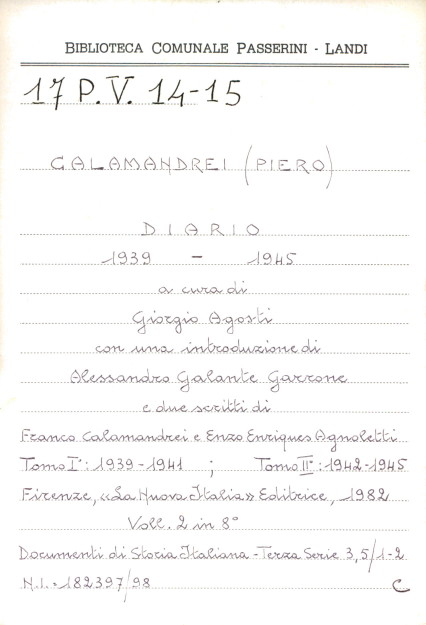 BIBLIOTECA COMUNALE PASSERINI - LANDI
17 P.V. 14-15
CALAMANDREI (PIERO)
DIARIO
1939 - 1945
a cura di
Giorgio Agosti
con una introduzione di
Alessandro Galante Garrone
e due scritti di
Franco Calamandrei e Enzo Enriques Agnoletti
Tomo I°: 1939-1941 ; Tomo II°: 1942-1945
Firenze, «La Nuova Italia» Editrice, 1982
Voll. 2 in 8°
Documenti di Storia Italiana - Terza Serie 3,5/1-2
N.I. 182397/98 C